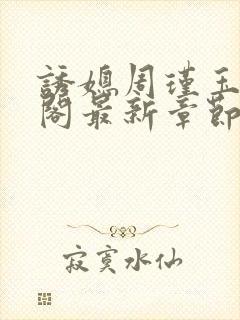 誘媳周瑾玉
閣最新章節
寂寞水仙